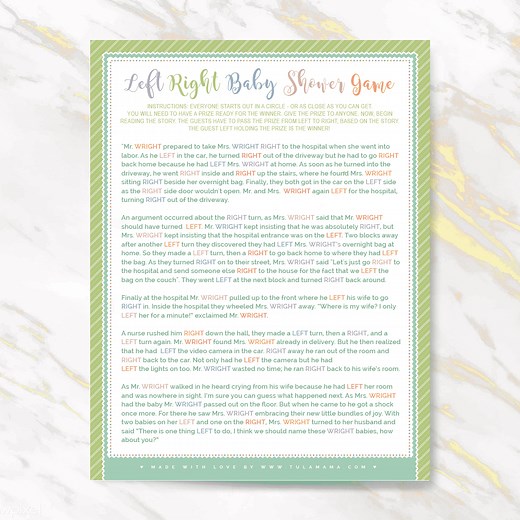 Left Right Baby Shower Game
INSTRUCTIONS: EVERYONE STARTS OUT IN A CIRCLE - OR AS CLOSE AS YOU CAN GET.
YOU WILL NEED TO HAVE A PRIZE READY FOR THE WINNER. GIVE THE PRIZE TO ANYONE. NOW, BEGIN
READING THE STORY. THE GUESTS HAVE TO PASS THE PRIZE FROM LEFT TO RIGHT, BASED ON THE STORY.
THE GUEST LEFT HOLDING THE PRIZE IS THE WINNER!
"Mr. WRIGHT prepared to take Mrs. WRIGHT RIGHT to the hospital when she went into
labor. As he LEFT in the car, he turned RIGHT out of the driveway but he had to go RIGHT
back home because he had LEFT Mrs. WRIGHT at home. As soon as he turned into the
driveway, he went RIGHT inside and RIGHT up the stairs, where he found Mrs. WRIGHT
sitting RIGHT beside her overnight bag. Finally, they both got in the car on the LEFT side
as the RIGHT side door wouldn't open. Mr. and Mrs. WRIGHT again LEFT for the hospital,
turning RIGHT out of the driveway.
An argument occurred about the RIGHT turn, as Mrs. WRIGHT said that Mr. WRIGHT
should have turned LEFT. Mr. WRIGHT kept insisting that he was absolutely RIGHT, but
Mrs. WRIGHT kept insisting that the hospital entrance was on the LEFT. Two blocks away
after another LEFT turn they discovered they had LEFT Mrs. WRIGHT's overnight bag at
home. So they made a LEFT turn, then a RIGHT to go back home to where they had LEFT
the bag. As they turned RIGHT on to their street, Mrs. WRIGHT said "Let's just go RIGHT to
the hospital and send someone else RIGHT to the house for the fact that we LEFT the
bag on the couch". They went LEFT at the next block and turned RIGHT back around.
Finally at the hospital Mr. WRIGHT pulled up to the front where he LEFT his wife to go
RIGHT in. Inside the hospital they wheeled Mrs. WRIGHT away. "Where is my wife? I only
LEFT her for a minute!" exclaimed Mr. WRIGHT.
A nurse rushed him RIGHT down the hall, they made a LEFT turn, then a RIGHT, and a
LEFT turn again. Mr. WRIGHT found Mrs. WRIGHT already in delivery. But he then realized
that he had LEFT the video camera in the car. RIGHT away he ran out of the room and
RIGHT back to the car. Not only had he LEFT the camera but he had
LEFT the lights on too. Mr. WRIGHT wasted no time; he ran RIGHT back to his wife's room.
As Mr. WRIGHT walked in he heard crying from his wife because he had LEFT her room
and was nowhere in sight. I'm sure you can guess what happened next. As Mrs. WRIGHT
had the baby Mr. WRIGHT passed out on the floor. But when he came to he got a shock
once more. For there he saw Mrs. WRIGHT embracing their new little bundles of joy. With
two babies on her LEFT and one on the RIGHT, Mrs. WRIGHT turned to her husband and
said "There is one thing LEFT to do, I think we should name these WRIGHT babies, how
about you?"
MADE WITH LOVE BY WWW.TULAMAMA.COM